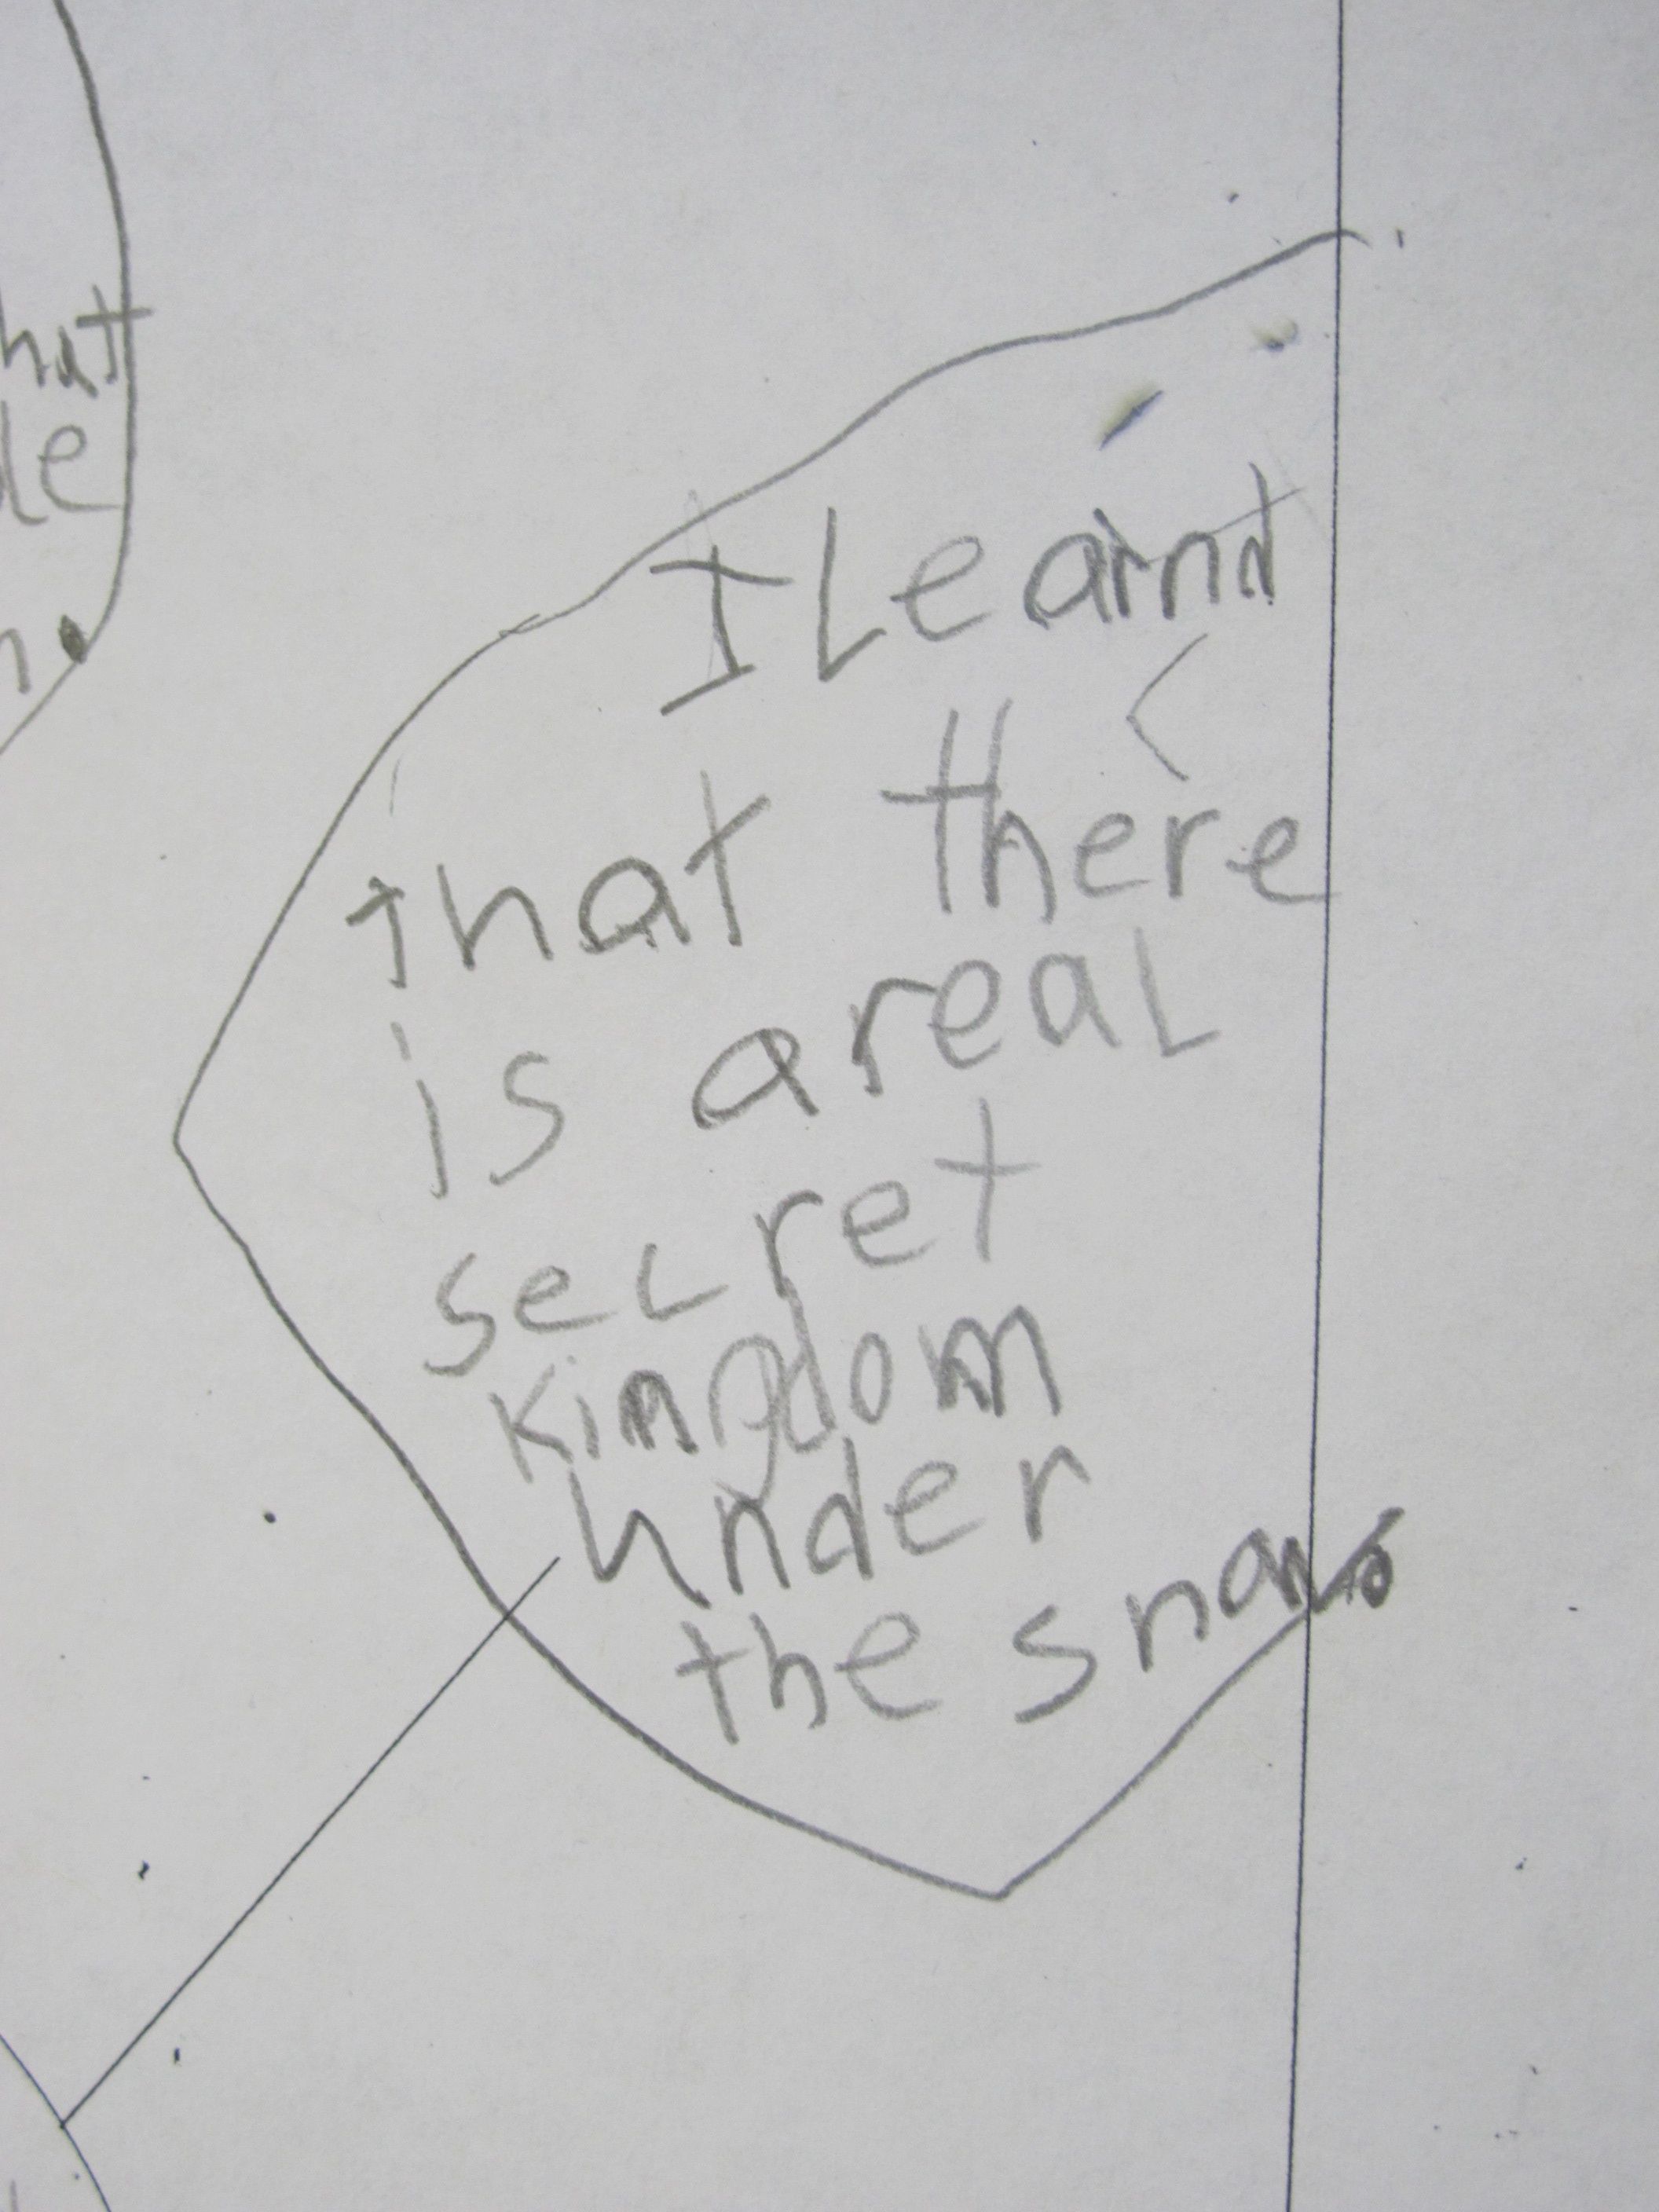 hat
le
n.
I Learnt
that there
is a real
secret
kingdom
under
the snow.